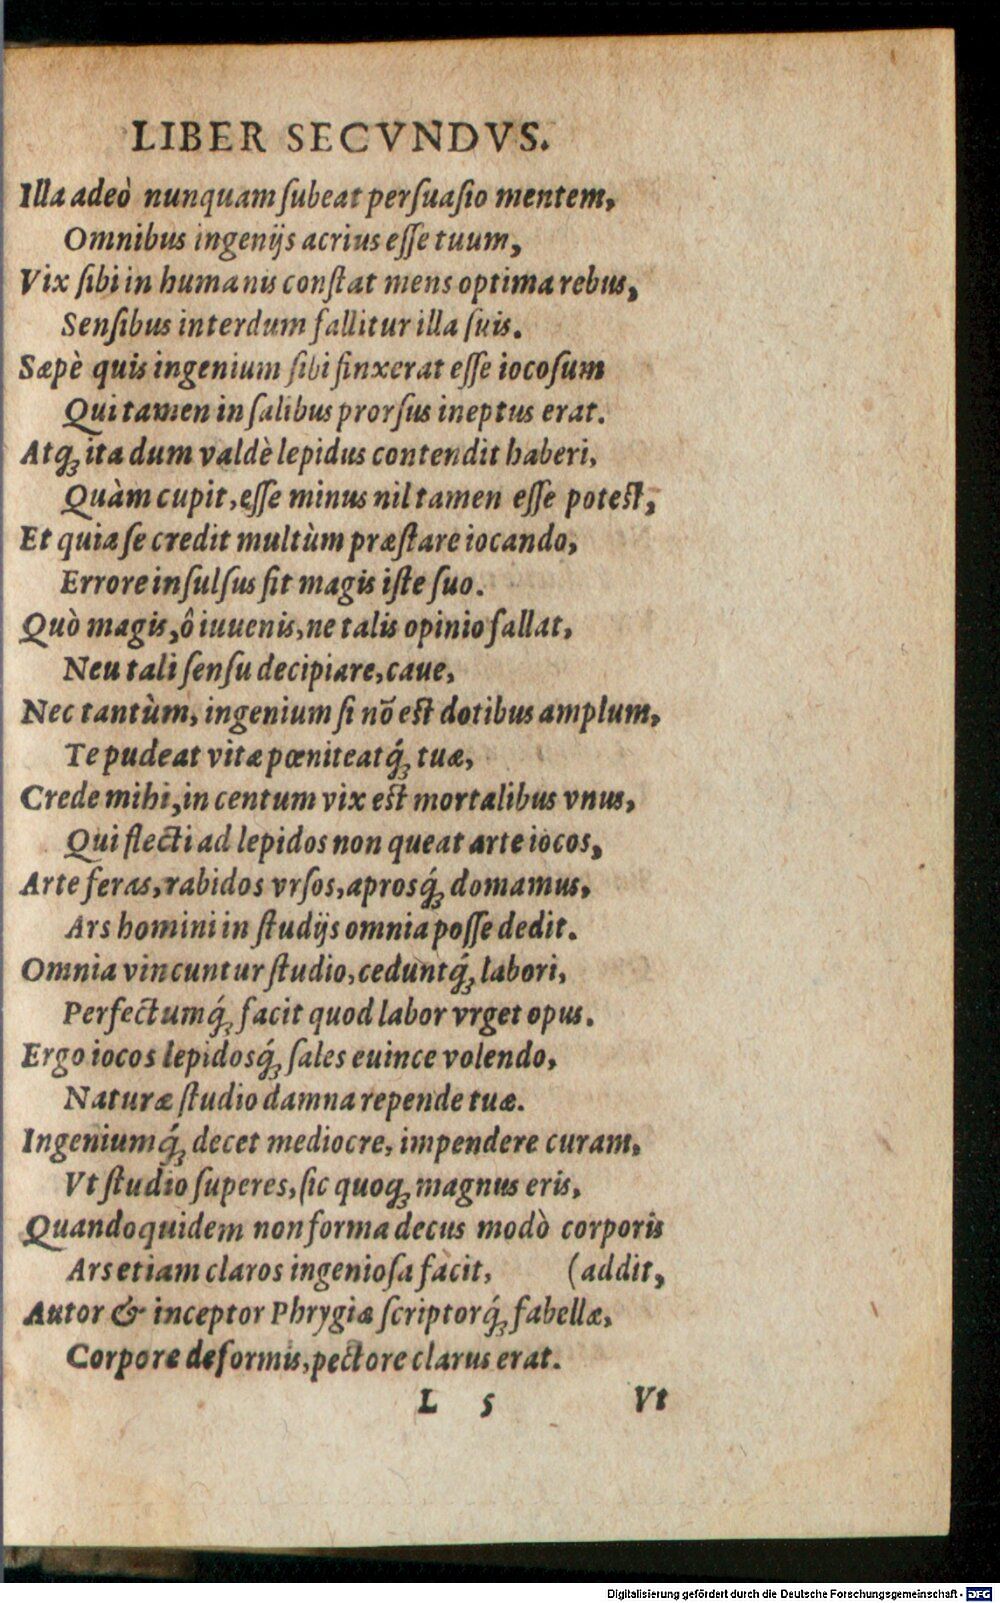 LIBER SECVNDVS.
Illa adeò nunquam ſubeat perſuaſio mentem,
Omnibus ingenijs acrius eſſe tuum,
Vix ſibi in humanis conſtat mens optima rebus,
Senſibus interdum fallitur illa ſuis.
Sæpè quis ingenium ſibi finxerat eſſe iocoſum
Qui tamen in ſalibus prorſus ineptus erat.
Atq́ꝫ ita dum valdè lepidus contendit haberi,
Quàm cupit, eſſe minus nil tamen eſſe poteſt,
Et quia ſe credit multùm præſtare iocando,
Errore inſulſus fit magis iſte ſuo.
Quò magis, ô iuuenis, ne talis opinio fallat,
Neu tali ſenſu decipiare, caue,
Nec tantùm, ingenium ſi nõ eſt dotibus amplum,
Te pudeat vitæ pœniteatq́ꝫ tuæ,
Crede mihi, in centum vix eſt mortalibus vnus,
Qui flecti ad lepidos non queat arte iocos,
Arte feras, rabidos vrſos, aprosq́ꝫ domamus,
Ars homini in ſtudijs omnia poſſe dedit.
Omnia vincuntur ſtudio, ceduntq́ꝫ labori,
Perfectumq́ꝫ facit quod labor vrget opus.
Ergo iocos lepidosq́ꝫ ſales euince volendo,
Naturæ ſtudio damna repende tuæ.
Ingeniumq́ꝫ decet mediocre, impendere curam,
Vt ſtudio ſuperes, ſic quoqꝫ magnus eris,
Quandoquidem non forma decus modò corporis
Ars etiam claros ingenioſa facit, (addit,
Autor & inceptor Phrygiæ ſcriptorq́ꝫ fabellæ,
Corpore deformis, pectore clarus erat.
L 5 Vt
Digitalisierung gefördert durch die Deutsche Forschungsgemeinschaft - DFG